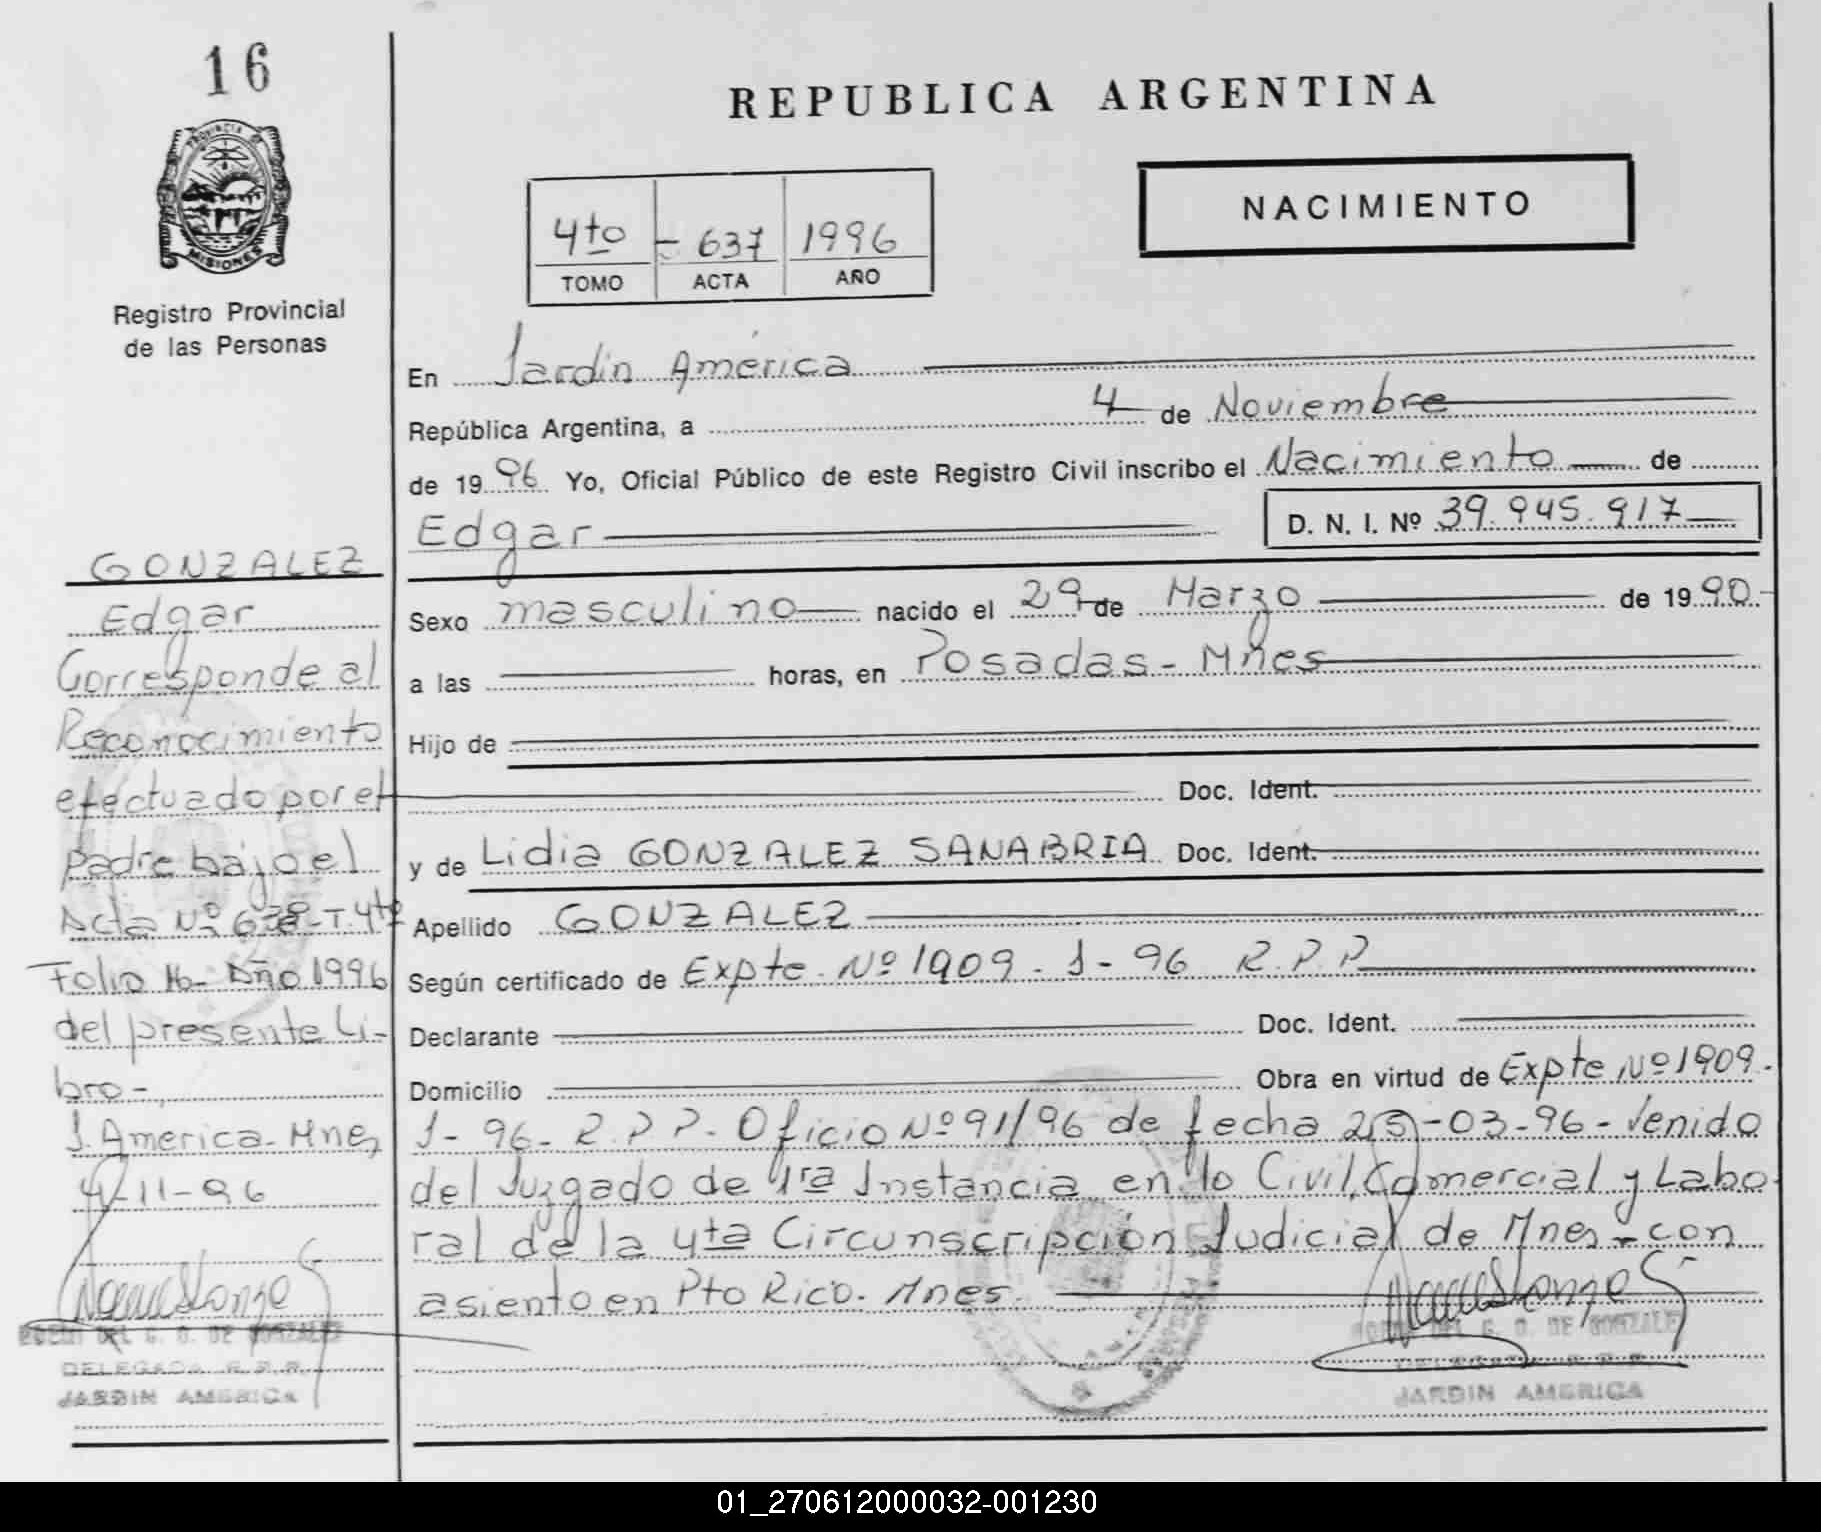 16
PROVINCIA DE
MISIONES
Registro Provincial
de las Personas
REPUBLICA ARGENTINA
NACIMIENTO
4to - 637 1996
TOMO ACTA AÑO
En Jardín América
República Argentina, a 4 de Noviembre
de 1996 Yo, Oficial Público de este Registro Civil inscribo el Nacimiento de
Edgar D. N. I. Nº 39.945.917
Sexo masculino nacido el 29 de Marzo de 1990
a las horas, en Posadas - Mnes
Hijo de
Doc. Ident.
y de Lidia GONZALEZ SANABRIA Doc. Ident.
Apellido GONZALEZ
Según certificado de Expte. Nº 1909 - J - 96 R.P.P
Declarante Doc. Ident.
Domicilio Obra en virtud de Expte Nº 1909 -
J - 96 - R.P.P. Oficio Nº 91/96 de fecha 25-03-96 - Venido
del Juzgado de 1ra Instancia en lo Civil, Comercial y Labo-
ral de la 4ta Circunscripción Judicial de Mnes - con
asiento en Pto Rico. Mnes.
DEL C. G. DE GONZALEZ
DELEGADA R.P.P.
JARDIN AMERICA
GONZALEZ
Edgar
Corresponde al
Reconocimiento
efectuado por el
padre bajo el
Acta Nº 638 - T. 4to
Folio 16 - Año 1996
del presente Li-
bro -
J. America - Mnes
4-11-96
DEL C. G. DE GONZALEZ
DELEGADA R.P.P.
JARDIN AMERICA
01_270612000032-001230